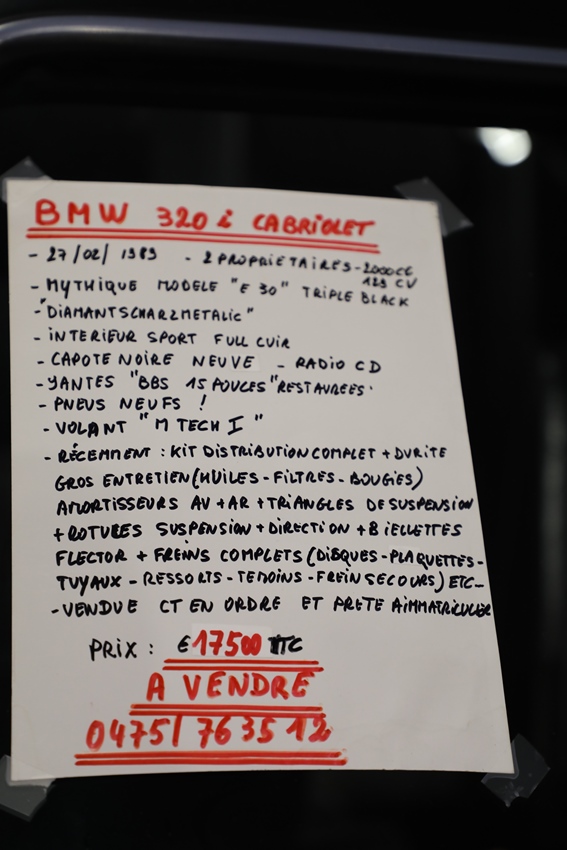 BMW 320 i CABRIOLET
- 27/02/ 1989 - 2 PROPRIETAIRES - 2000CC
129 CV
- MYTHIQUE MODELE "E 30" TRIPLE BLACK
- "DIAMANTSCHARZMETALIC"
- INTERIEUR SPORT FULL CUIR
- CAPOTE NOIRE NEUVE - RADIO CD
- YANTES "BBS 15 POUCES" RESTAUREES.
- PNEUS NEUFS !
- VOLANT "M TECH I"
- RÉCEMMENT : KIT DISTRIBUTION COMPLET + DURITE
GROS ENTRETIEN (HUILES - FILTRES - BOUGIES)
AMORTISSEURS AV + AR + TRIANGLES DE SUSPENSION
+ ROTULES SUSPENSION + DIRECTION + BIELLETTES
FLECTOR + FREINS COMPLETS (DISQUES - PLAQUETTES -
TUYAUX - RESSORTS - TEMOINS - FREIN SECOURS) ETC-
- VENDUE CT EN ORDRE ET PRETE A IMMATRICULER
PRIX : € 17500 TTC
A VENDRE
0475/ 76 35 12